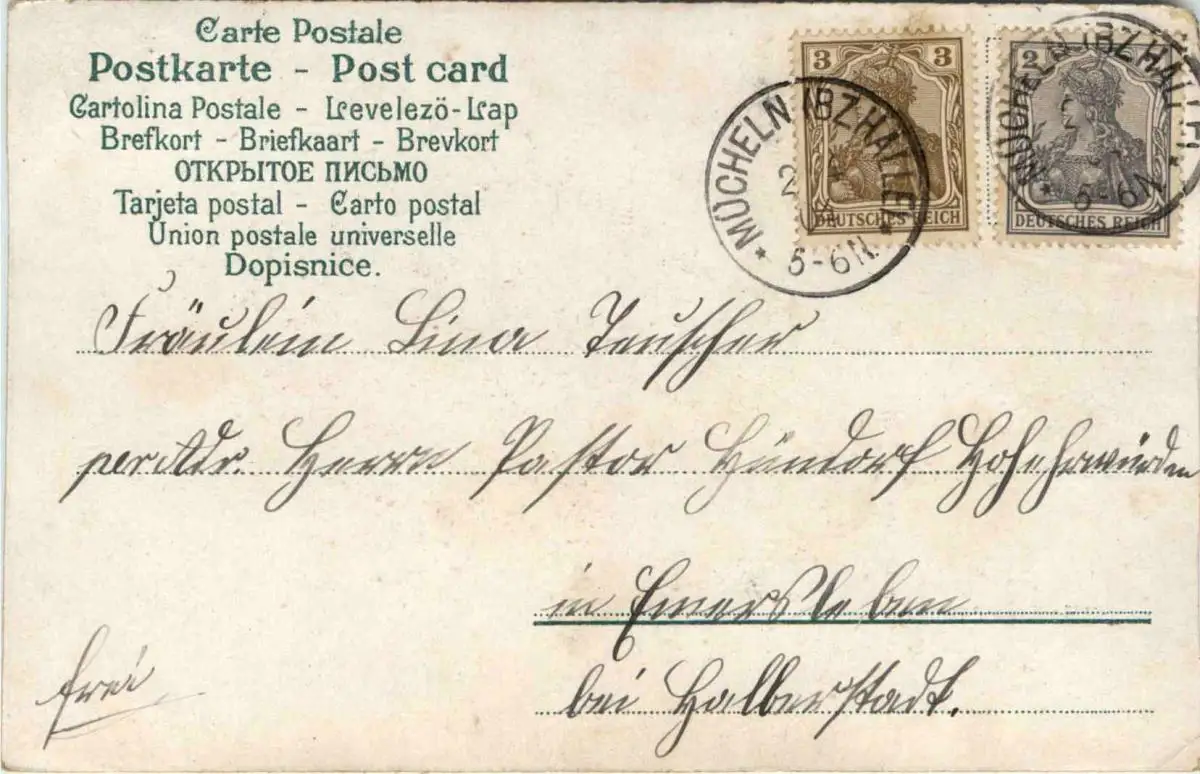 Carte Postale
Postkarte - Post card
Cartolina Postale - Levelezö-Lap
Brefkort - Briefkaart - Brevkort
ОТКРЫТОЕ ПИСЬМО
Tarjeta postal - Carto postal
Union postale universelle
Dopisnice.
3 3
DEUTSCHES REICH
2
DEUTSCHES REICH
MÜCHELN (BZ HALLE)
5-6N
MÜCHELN (BZ HALLE)
5-6N
Fräulein Lina Teuscher
per Adr. Herrn Pastor Hochehrwürden
in Emersleben
bei Halberstadt.
frei